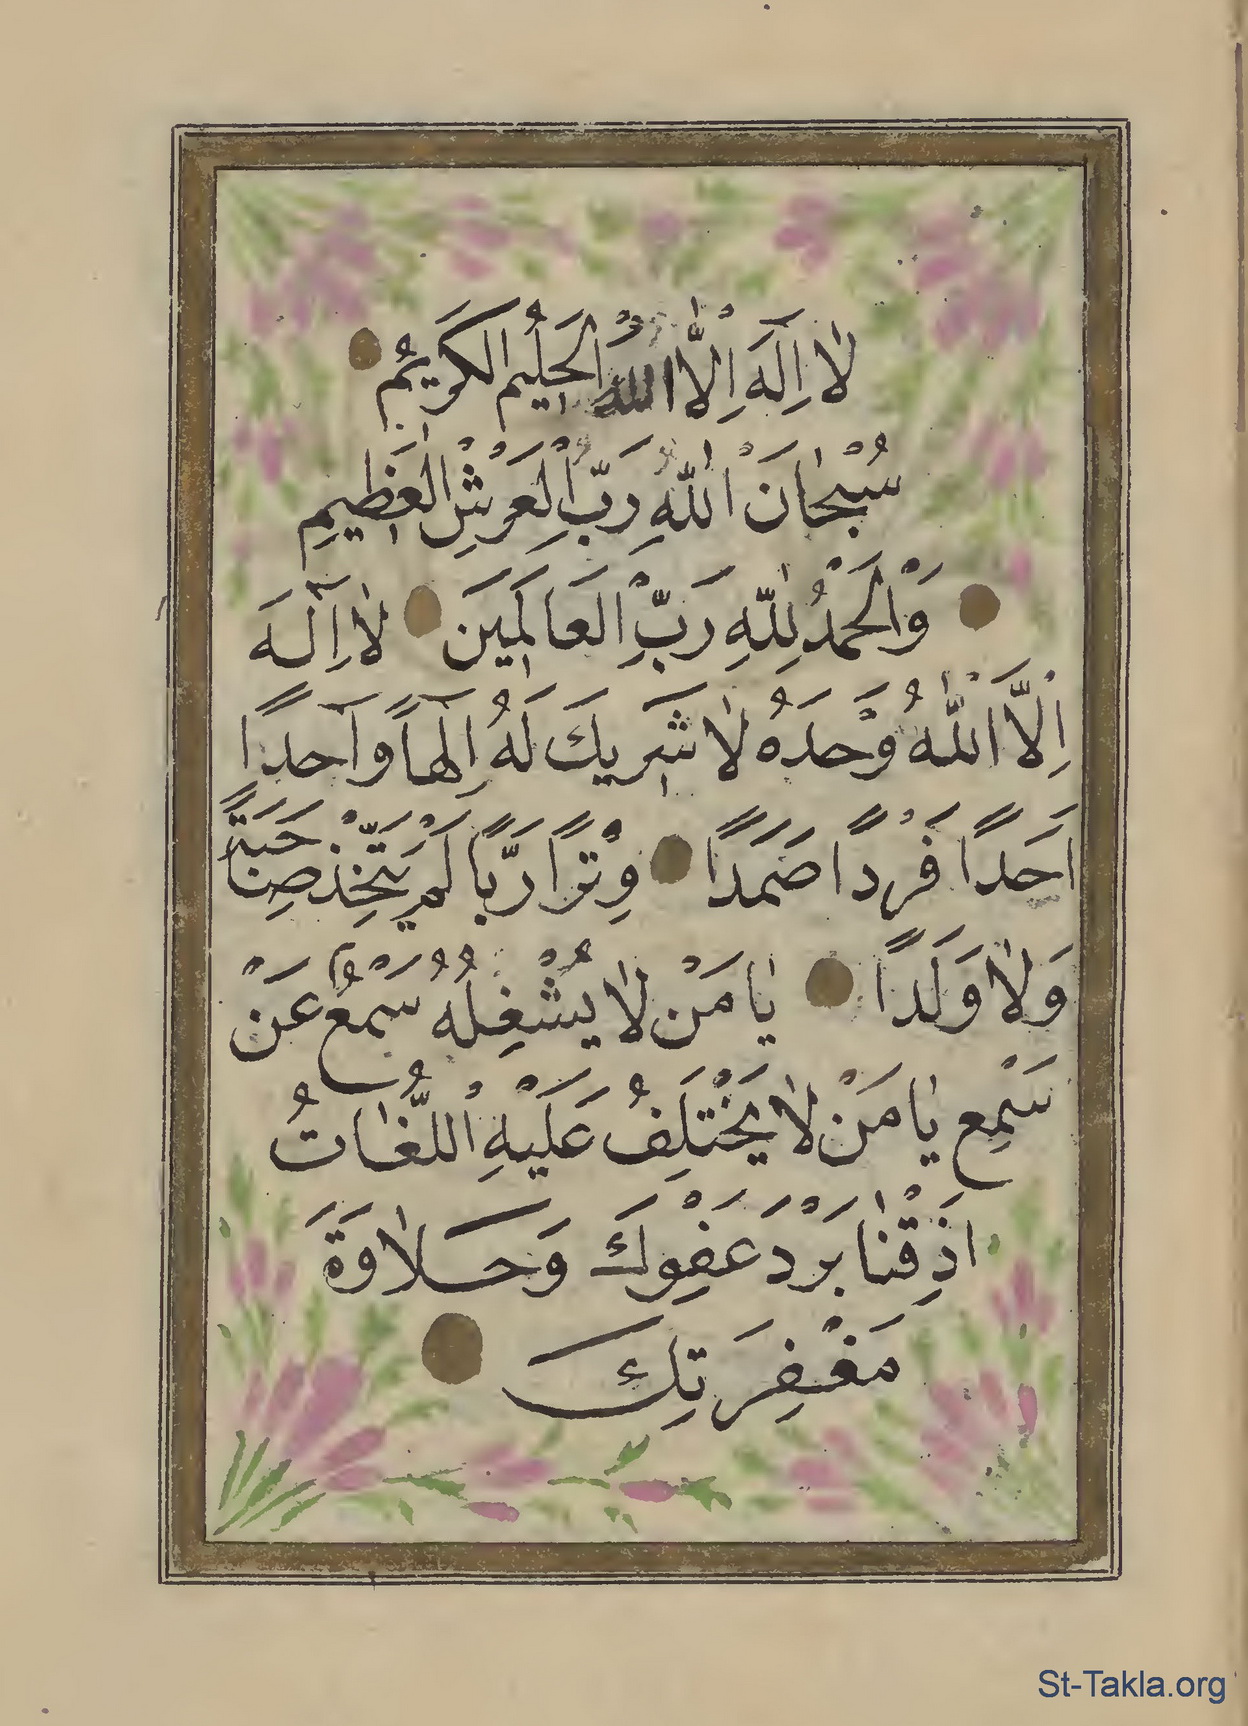 لٰا اِلٰهَ اِلَّا اللهُ الْحَلِيمُ الْكَرِيمُ
سُبْحٰانَ اللّٰهِ رَبِّ الْعَرْشِ الْعَظِيمِ
وَالْحَمْدُ لِلّٰهِ رَبِّ الْعَالَمِينَ لٰا اِلٰهَ
اِلَّا اللّٰهُ وَحْدَهُ لٰا شَرِيكَ لَهُ اِلٰهاً وٰاحِدًا
اَحَدًا فَرْدًا صَمَدًا وِتْرًا رَبًّا لَمْ يَتَّخِذْ صٰاحِبَةً
وَلٰا وَلَدًا يٰا مَنْ لٰا يُشْغِلُهُ سَمْعٌ عَنْ
سَمْعٍ يٰا مَنْ لٰا يَخْتَلِفُ عَلَيْهِ اللُّغٰاتُ
اَذِقْنٰا بَرْدَ عَفْوِكَ وَحَلٰاوَةَ
مَغْفِرَتِكَ
St-Takla.org